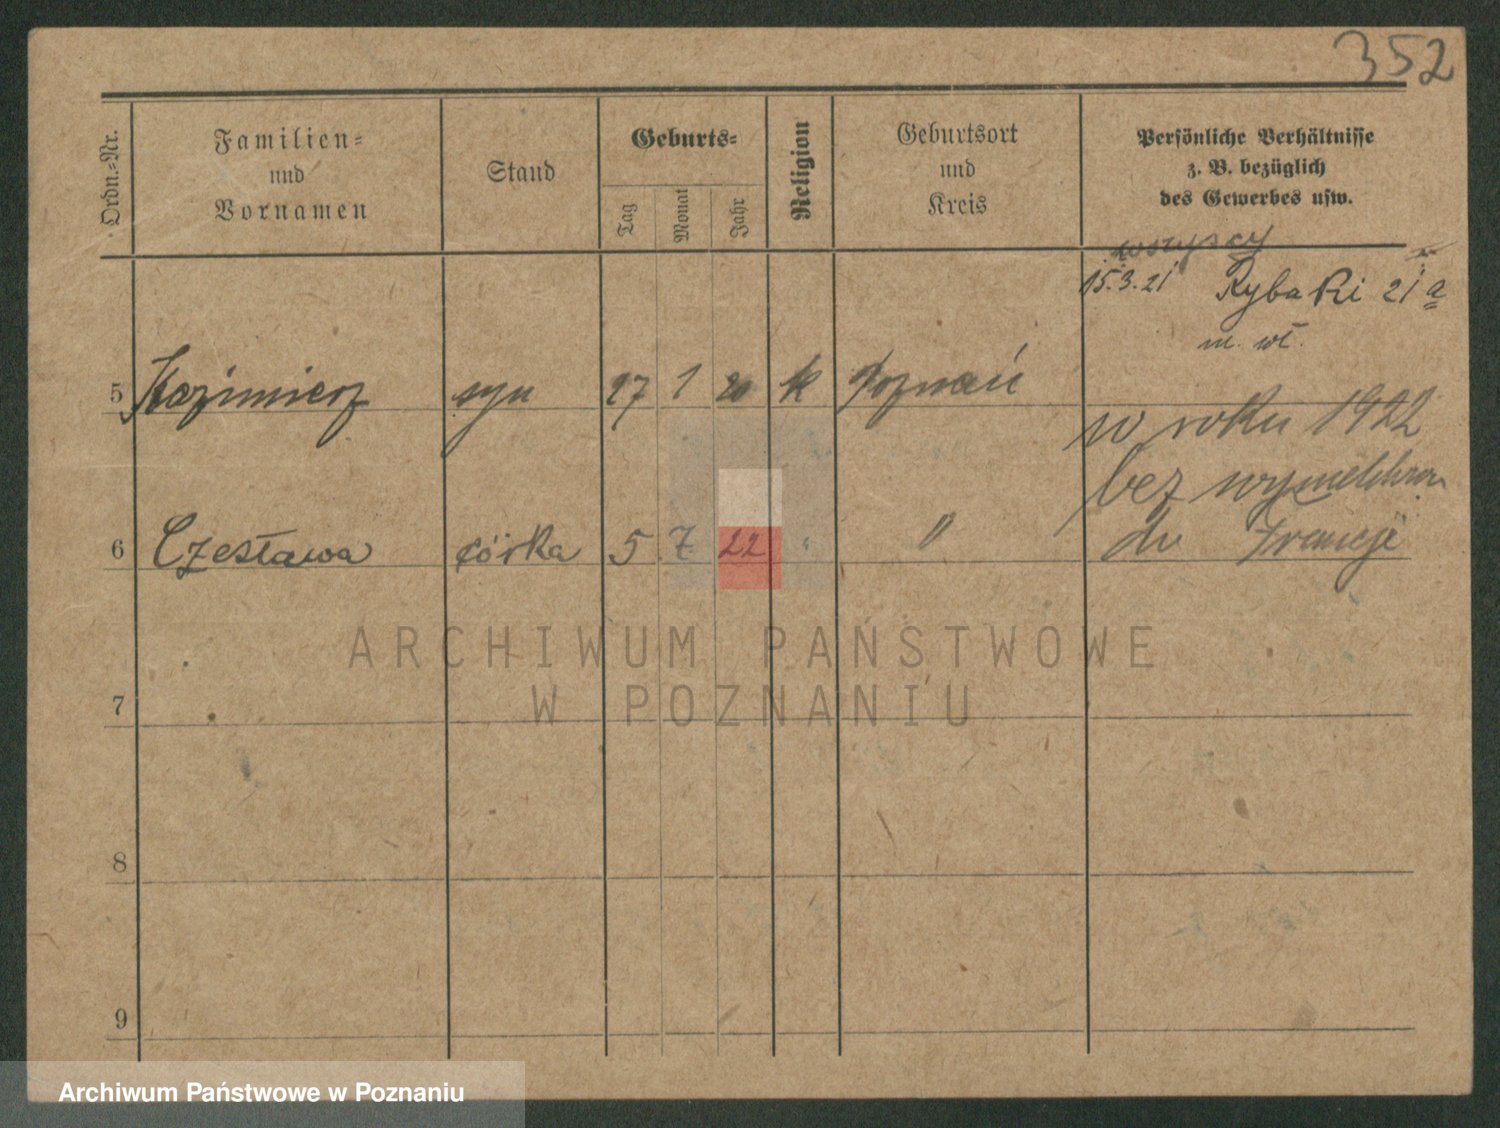 352
Ordn.-Nr.
Familien-
und
Vornamen
Stand
Geburts-
Tag
Monat
Jahr
Religion
Geburtsort
und
Kreis
Persönliche Verhältnisse
z. B. bezüglich
des Gewerbes usw.
wszyscy
15.3.21 Rybaki 21 a
m. wł.
5 Kazimierz syn 27 1 20 k Poznań
w roku 1922
bez wymeldow
6 Czesława córka 5 7 22 " "
do Francji
ARCHIWUM PAŃSTWOWE
W POZNANIU
7
8
9
Archiwum Państwowe w Poznaniu